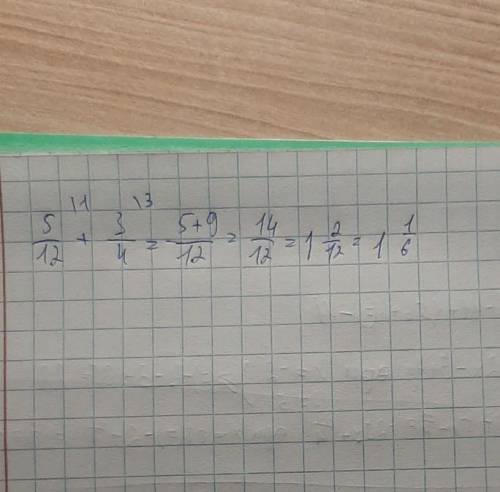 5/12 \1 + 3/4 \3 = 5+9/12 = 14/12 = 1 2/12 = 1 1/6